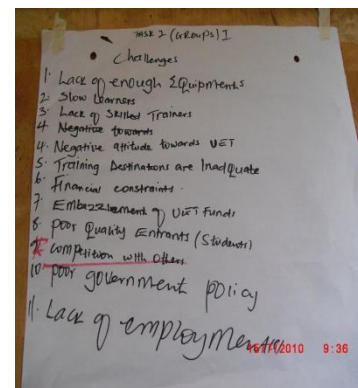 TASK 2 (GROUPS) I
Challenges
1. Lack of enough Equipments
2. Slow Learners
3. Lack of Skilled Trainers
4. Negative towards
4. Negative attitude towards VET
5. Training Destinations are Inadquate
6. Financial constraints.
7. Embazzlement of VET Funds
8. Poor Quality Entrants (Students)
9. Competition with others
10. Poor government policy
11. Lack of employment
2010 9:36